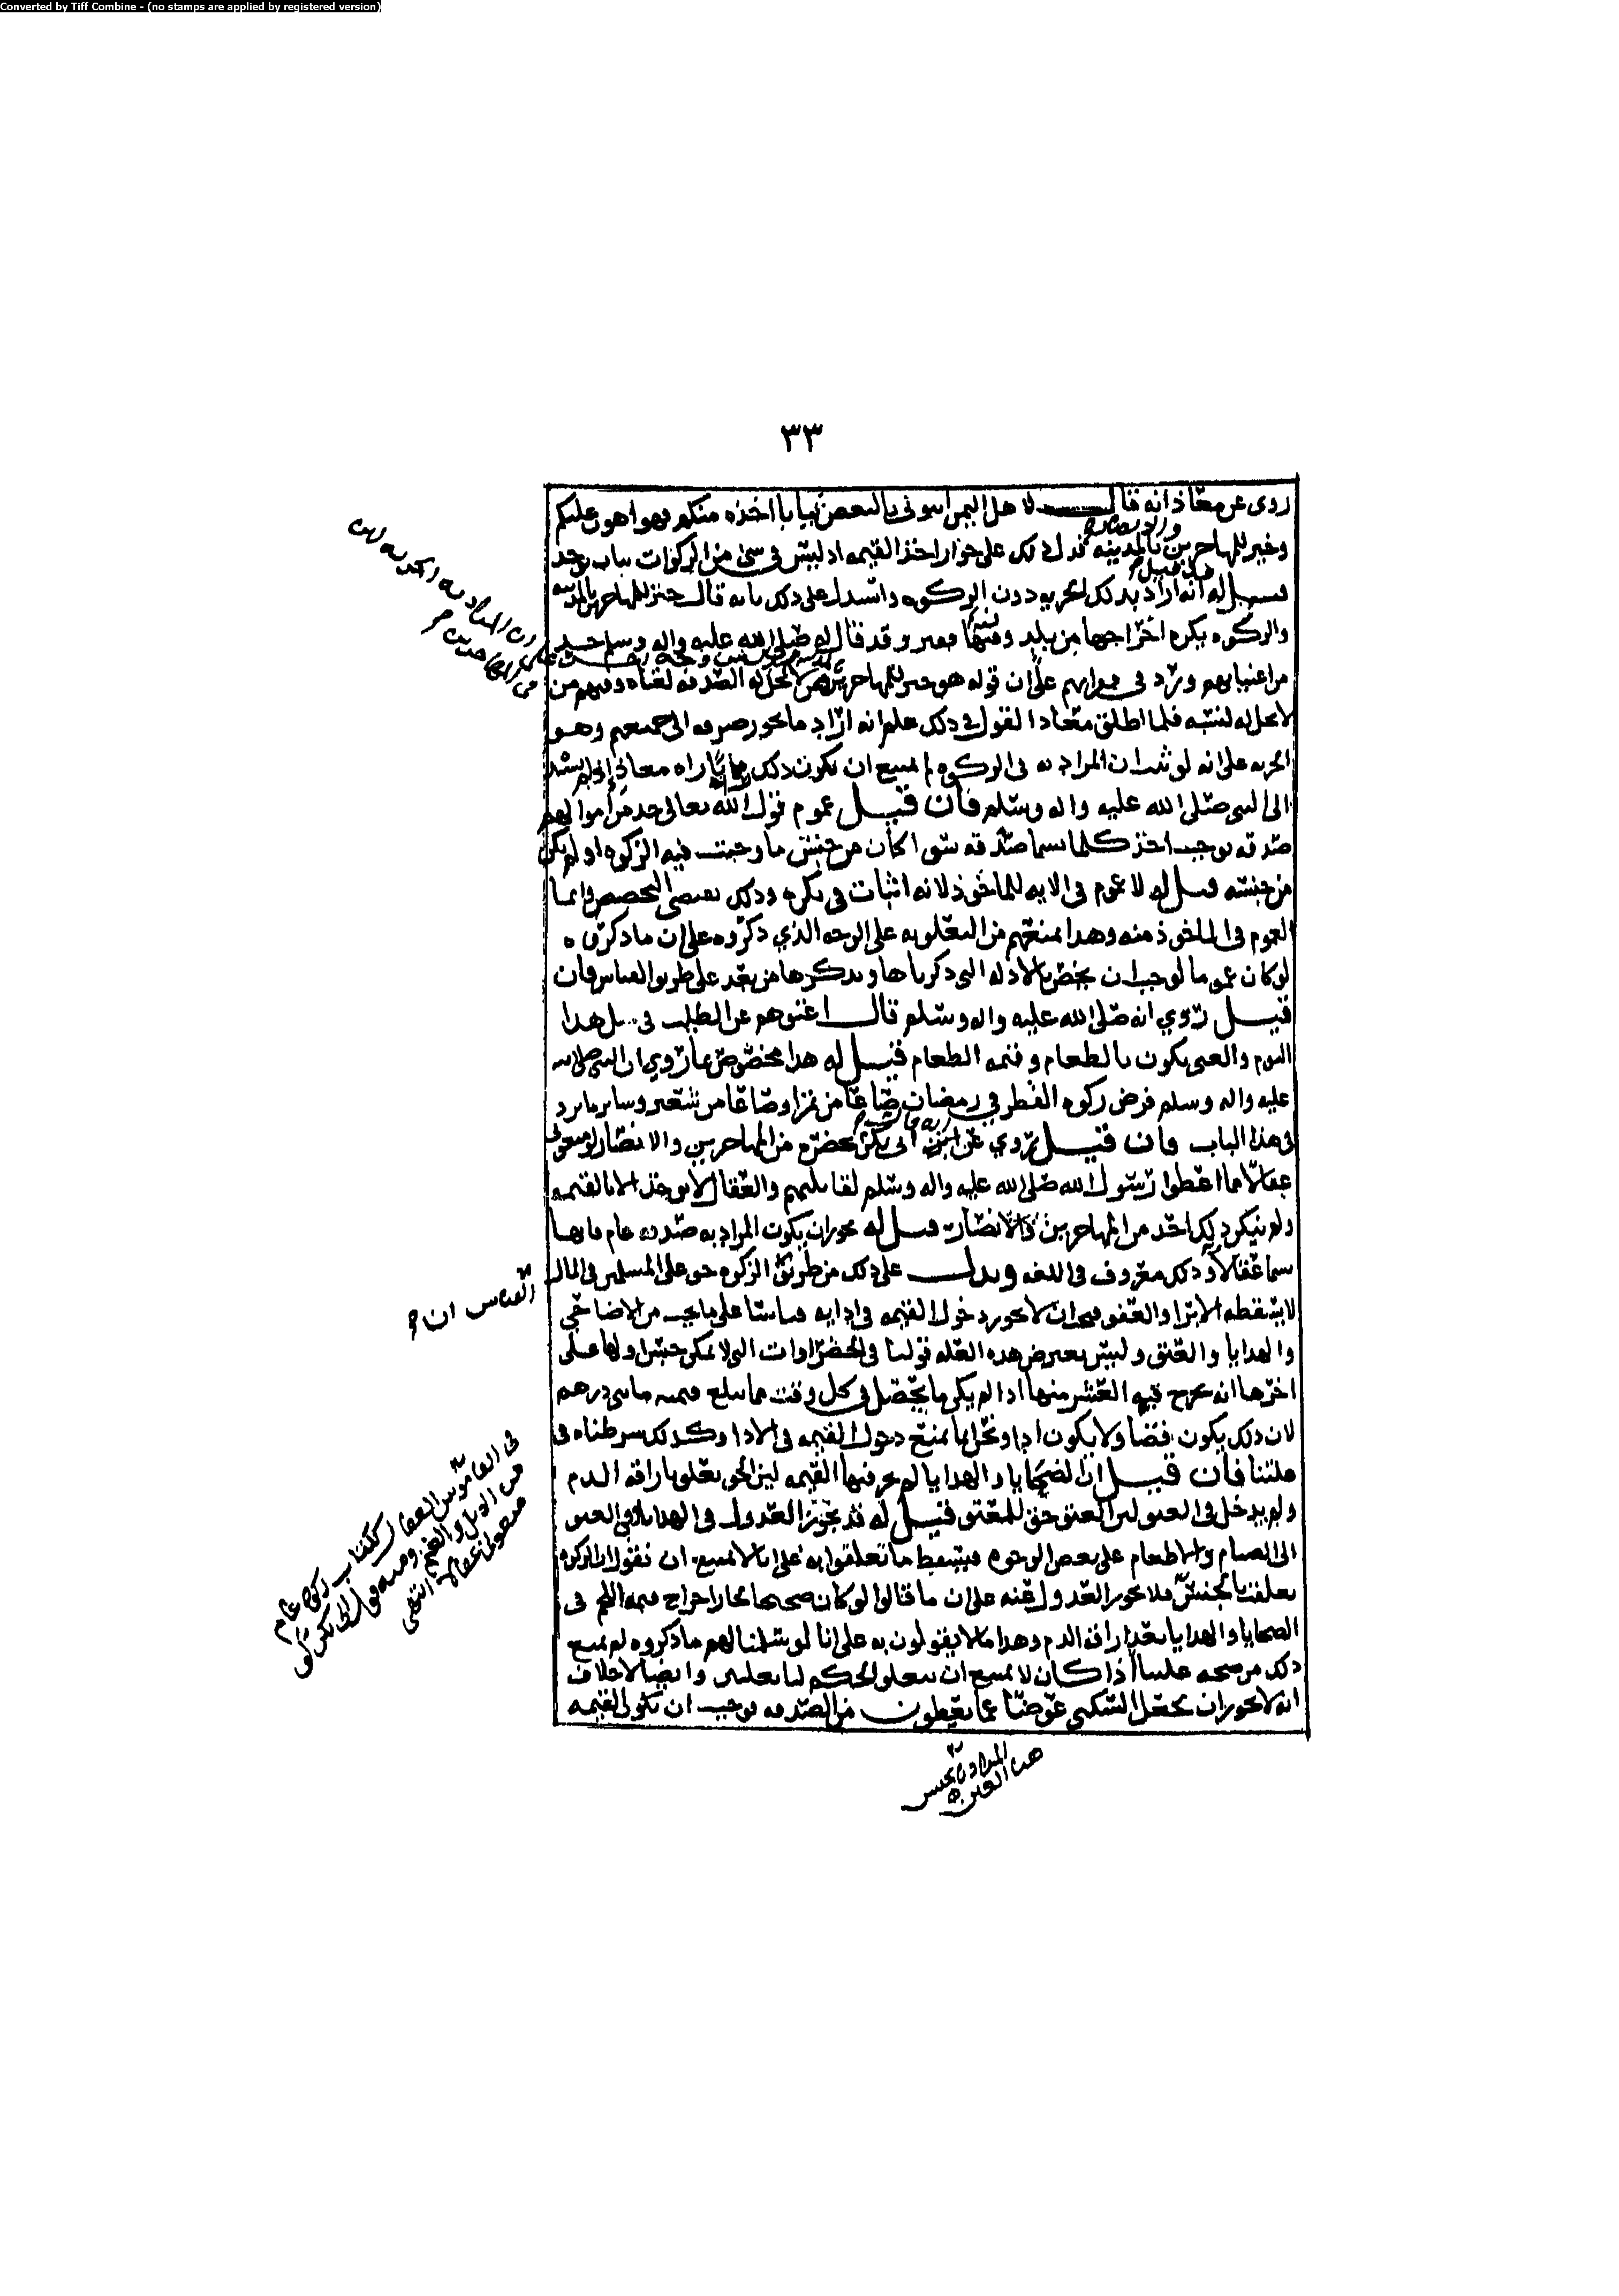 Converted by Tiff Combine - (no stamps are applied by registered version)
٣٣
روى عن معاذ انه قال لاهل اليمن ايتونى بالعرض ثيابا اخذه منكم فهو اهون عليكم
وخير للمهاجرين بالمدينه فدل ذلك على جواز اخذ القيمه اذ ليس فى شى من الزكوات ثياب توخذ
قيل له انه اراد بذلك الجزيه دون الزكوه واستدل على ذلك بانه قال خير للمهاجرين بالمدينه
والزكوه يكره اخراجها من بلد وفيها فقير وقد قال صلى الله عليه واله وسلم
من اغنيايهم وترد فى فقرايهم على ان قوله هو خير للمهاجرين لا تحل له الصدقه لغناه وفيهم من
لا تحل له لنسبه فلما اطلق معاذ القول فى ذلك علم انه اراد ما يجوز صرفه الى جميعهم وهو
الجزيه على انه لو ثبت ان المراد به فى الزكوه لم يمتنع ان يكون ذلك راه معاذ اذ لم يسند
الى النبى صلى الله عليه واله وسلم فان قيل عموم قول الله تعالى خذ من اموالهم
صدقه يوجب اخذ كلما يسما صدقه سوا كان من جنس ما وجبت فيه الزكوه او لم يكن
من جنسه قيل له لا عموم فى الايه للماخوذ لانه اثبات فى نكره وذلك يقتضى التخصيص وانما
العموم فى الماخوذ منه وهذا يمنعهم من التعلق به على الوجه الذي ذكروه على ان ما ذكروه
لو كان عموما لوجب ان يخص بالادله التى ذكرناها ونذكرها من بعد على طريق القياس فان
قيل روي انه صلى الله عليه واله وسلم قال اغنوهم عن الطلب فى مثل هذا
اليوم والغنى يكون بالطعام وقيمه الطعام قيل له هذا مخصوص بما روي ان النبى صلى الله
عليه واله وسلم فرض زكوه الفطر في رمضان صاعا من تمر او صاعا من شعير وساير ما يرد
فى هذا الباب فان قيل روي عن ابى بكر بحضره من المهاجرين والانصار لو منعونى
عقالا مما اعطوا رسول الله صلى الله عليه واله وسلم لقاتلتهم والعقال لا يوخذ الا بالقيمه
ولم ينكر ذلك احد من المهاجرين والانصار قيل له يجوز ان يكون المراد به صدقه عام فانها
تسما عقالا وذلك معروف فى اللغه ويدل على ذلك من طريق الزكوه حق على المسلمين فى المال
القياس ان
لا يسقطه الابرا والعفو فيجب ان لا يجوز دخول القيمه فى ادايه قياسا على ما يجب من الاضاحي
والهدايا والعتق وليس يعترض هذه العله قولنا فى الخضراوات التى لا يمكن حبس اولها على
اخرها انه يخرج قيمه العشر منها اذا لم يكن ما يحصل فى كل وقت مما يبلغ قيمته مايتى درهم
لان ذلك يكون قضا ولا يكون ادا ونحن انما نمنع دخول القيمه فى الادا وكذلك شرطناه فى
علتنا فان قيل ان الضحايا والهدايا لم يجز فيها القيمه لان الحق تعلق باراقه الدم
ولم يدخل فى العتق لان العتق حق للمعتق قيل له قد يجوز العدول فى الهدايا وفى العتق
الى الصيام والاطعام على بعض الوجوه فيسقط ما تعلقوا به على انا لا نمتنع ان نقول ان الزكوه
تعلقت بالجنس فلا يجوز العدول عنه على ان ما قالوا لو كان صحيحا لجاز اخراج قيمه اللحم فى
الضحايا والهدايا بعد اراقه الدم وهذا ما لا يقولون به على انا لو سلمنا لهم ما ذكروه لم يمنع
ذلك من صحه علتنا اذا كان لا يمتنع ان يتعلق الحكم لنا بعلتين وايضا لا خلاف
انه لا يجوز ان يجعل السكنى عوضا عما يعطون من الصدقه فوجب ان تكون القيمه
فى القاموس العقال ككتاب زكوه عام
من الابل والغنم ومنه قول ابى بكر لو
منعونى عقالا انتهى